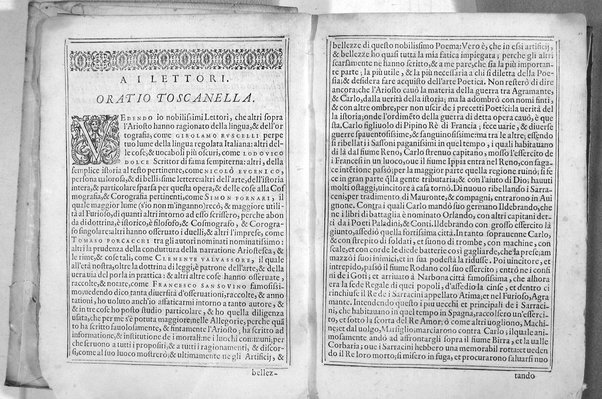 A I LETTORI.
ORATIO TOSCANELLA.
VEDENDO Io nobilissimi Lettori, che altri sopra
l'Ariosto hanno ragionato della lingua, & dell'or
tografia, come GIROLAMO RVSCELLI perpe
tuo lume della lingua regolata Italiana: altri del-
le cose, & uocaboli più oscuri, come LODOVICO
DOLCE Scrittor di fama sempiterna: altri, della
semplice istoria al testo pertinente, come NICOLÒ EVGENICO,
persona ualorosa, & di bellissime lettere: altri dell'arte, dell'istoria
intera, & particolare sparsa per questa opera, & delle cose alla Cos
mografia, & Corografia pertinenti, come SIMON FORNARI, il
quale maggior lume (s'io non m'inganno) recò, & maggiore utili
tà al Furioso, di quanti altri intorno ad esso scrissero, perche abon
da di dottrina, è istorico, è filosofo, & Cosmografo, & Corografo
singolare: altri hanno osseruato i detti, & altri l'imprese, come
TOMASO PORCACCHI tra gli autori nominati nominatissimo:
altri la prudenza della conduttura della narratione Ariostesca, &
le rime, & cose tali, come CLEMENTE VALVASSORE, il quale
all'età nostra, oltre la dottrina di leggi, è patrone dell'arte, & della
uera uia del poria in pratica: & altri altre cose hanno osseruate,
raccolte, & notate, come FRANCESCO SANSOVINO famosissi-
mo: uedendo dico tanta diuersità d'osseruationi, raccolte, & anno
tationi, ho uoluto anch'io affaticarmi intorno a tanto autore, &
& in tre cose ho posto studio particulare, & ho quella diligenza
usata, che per me s'è potuta maggiore: nelle Allegorie, perche quā
to ha scritto fauolosamente, & fintamente l'Ariosto; ha scritto ad
informatione, & institutione de i morali: ne i luochi communi, per
che seruono a tutti i propositi, & a tutti i ragionamenti, & discor-
si, come al suo luoco mostrerò: & ultimamente ne gli Artificij, &
bellez-
bellezze di questo nobilissimo Poema: Vero è, che in essi artificij, &
bellezze ho quasi tutta la mia fatica impiegata; perche gli altri
scarsamente ne hanno scritto, & a me pare, che sia la più importan-
te parte; la più utile, & la più necessaria a chi si diletta della Poe-
sia; & desidera fare acquisto dell'arte Poetica. Non lascierò di dire
ancora, che l'Ariosto cauò la materia della guerra tra Agramante
& Carlo, dalla uerità della istoria; ma la adombrò con nomi finti,
& con altre ombre, per non uscir de i precetti Poetici: la uerità del
la istoria, onde l'ordimēto della guerra di detta opera cauò, è que-
sta. Carlo figliuolo di Pipino Rè di Francia; fece uarie, & diuerse
guerre co' Sassoni, & sanguinosissime baruffe tra le altre; essendo
si ribellati i Sassoni paganissimi in quel tempo, i quali habitauano
di là dal fiume Reno, Carlo strenuo capitano, mosse l'essercito de
i Francesi in un luoco, oue il fiume Ippia entra nel Reno, con saga-
ce intētione passò; per la maggior parte quella regione ruinò; si fe
ce in gran parte q̄lla gente tributaria; & con l'aiuto di Dio; hauuti
molti ostaggi, uincitore à casa tornò. Di nuouo ribellando i Sarra-
ceni, per tradimento di Mauronte, & compagni, entrarono in Aui
gnone. Contra i quali Carlo mandò suo germano Ildebrando, che
ne i libri di battaglia è nominato Orlando, con altri capitani det-
ti da i Poeti Paladini, & Conti. Ildebrando con grosso essercito là
giunto, assediò quella fortissima città. In tanto soprauenne Carlo,
& con strepito di soldati, et suono di trombe, con machine, con
scale, et con corde le diede battaglie così gagliarde, che la prese: am
mazzò i suoi nimici, et in sua podestà la ridusse. Poi uincitore, et
intrepido, passò il fiume Rodano col suo essercito; entrò ne i confi
ni de i Gotti; et arriuato à Narbona città famosissima, che allhora
era la sede Regale di quei popoli, d'assedio la cinse, et dentro ci
rinchiuse il Re de i Sarraceni appellato Atima, et nel Furioso, Agra-
mante. Intendendo questo i più uecchi et principali de i Sarraci-
ni, che habitauano in quel tempo in Spagna, raccolsero un'esserci-
to, et sotto la scorta del Re Amor; ò come altri uogliono, Machi-
ne; et dal uolgo, Marfiglio; marciarono contra Carlo; il quale ani-
mosamente andò ad affrontargli sopra il fiume Birra, et la ualle
Corbaria; oue i Sarracini hebbero una memorabil rotta: et ueden
do il Re loro morto, si misero in fuga, et procurarono saluarsi nuo
tando